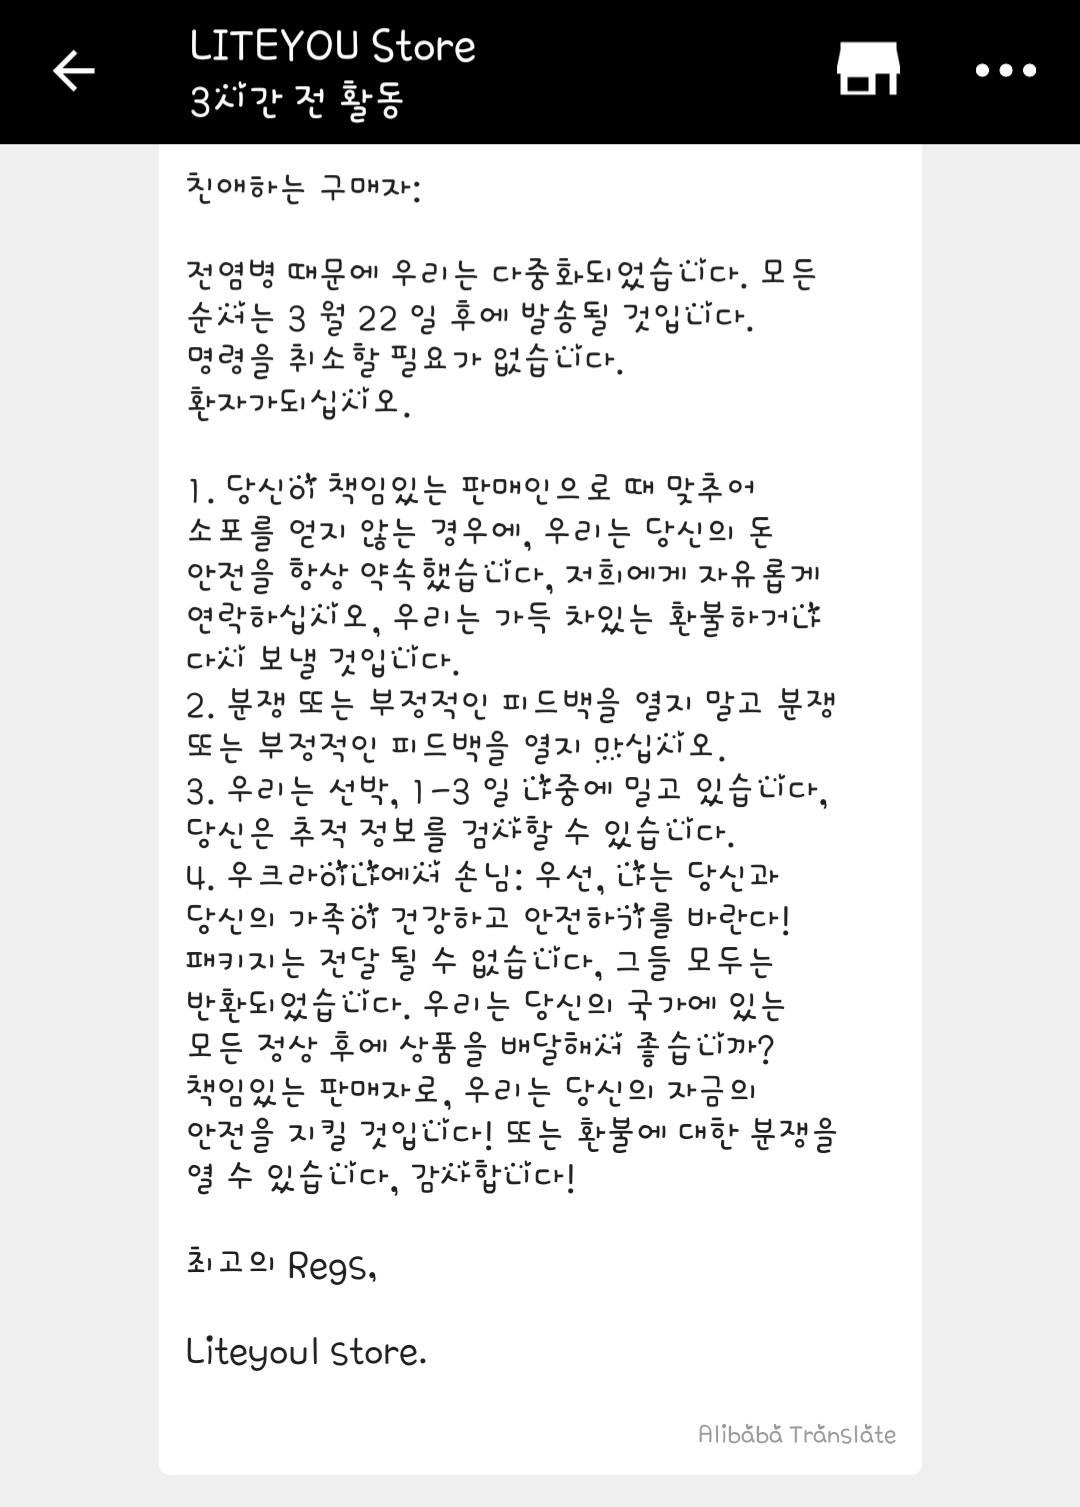 LITEYOU Store
3시간 전 활동
친애하는 구매자:
전염병 때문에 우리는 다중화되었습니다. 모든
순서는 3 월 22 일 후에 발송될 것입니다.
명령을 취소할 필요가 없습니다.
환자가되십시오.
1. 당신이 책임있는 판매인으로 때 맞추어
소포를 얻지 않는 경우에, 우리는 당신의 돈
안전을 항상 약속했습니다, 저희에게 자유롭게
연락하십시오, 우리는 가득 차있는 환불하거나
다시 보낼 것입니다.
2. 분쟁 또는 부정적인 피드백을 열지 말고 분쟁
또는 부정적인 피드백을 열지 마십시오.
3. 우리는 선박, 1-3 일 나중에 밀고 있습니다,
당신은 추적 정보를 검사할 수 있습니다.
4. 우크라이나에서 손님: 우선, 나는 당신과
당신의 가족이 건강하고 안전하기를 바란다!
패키지는 전달 될 수 없습니다, 그들 모두는
반환되었습니다. 우리는 당신의 국가에 있는
모든 정상 후에 상품을 배달해서 좋습니까?
책임있는 판매자로, 우리는 당신의 자금의
안전을 지킬 것입니다! 또는 환불에 대한 분쟁을
열 수 있습니다, 감사합니다!
최고의 Regs,
Liteyoul Store.
Alibaba Translate